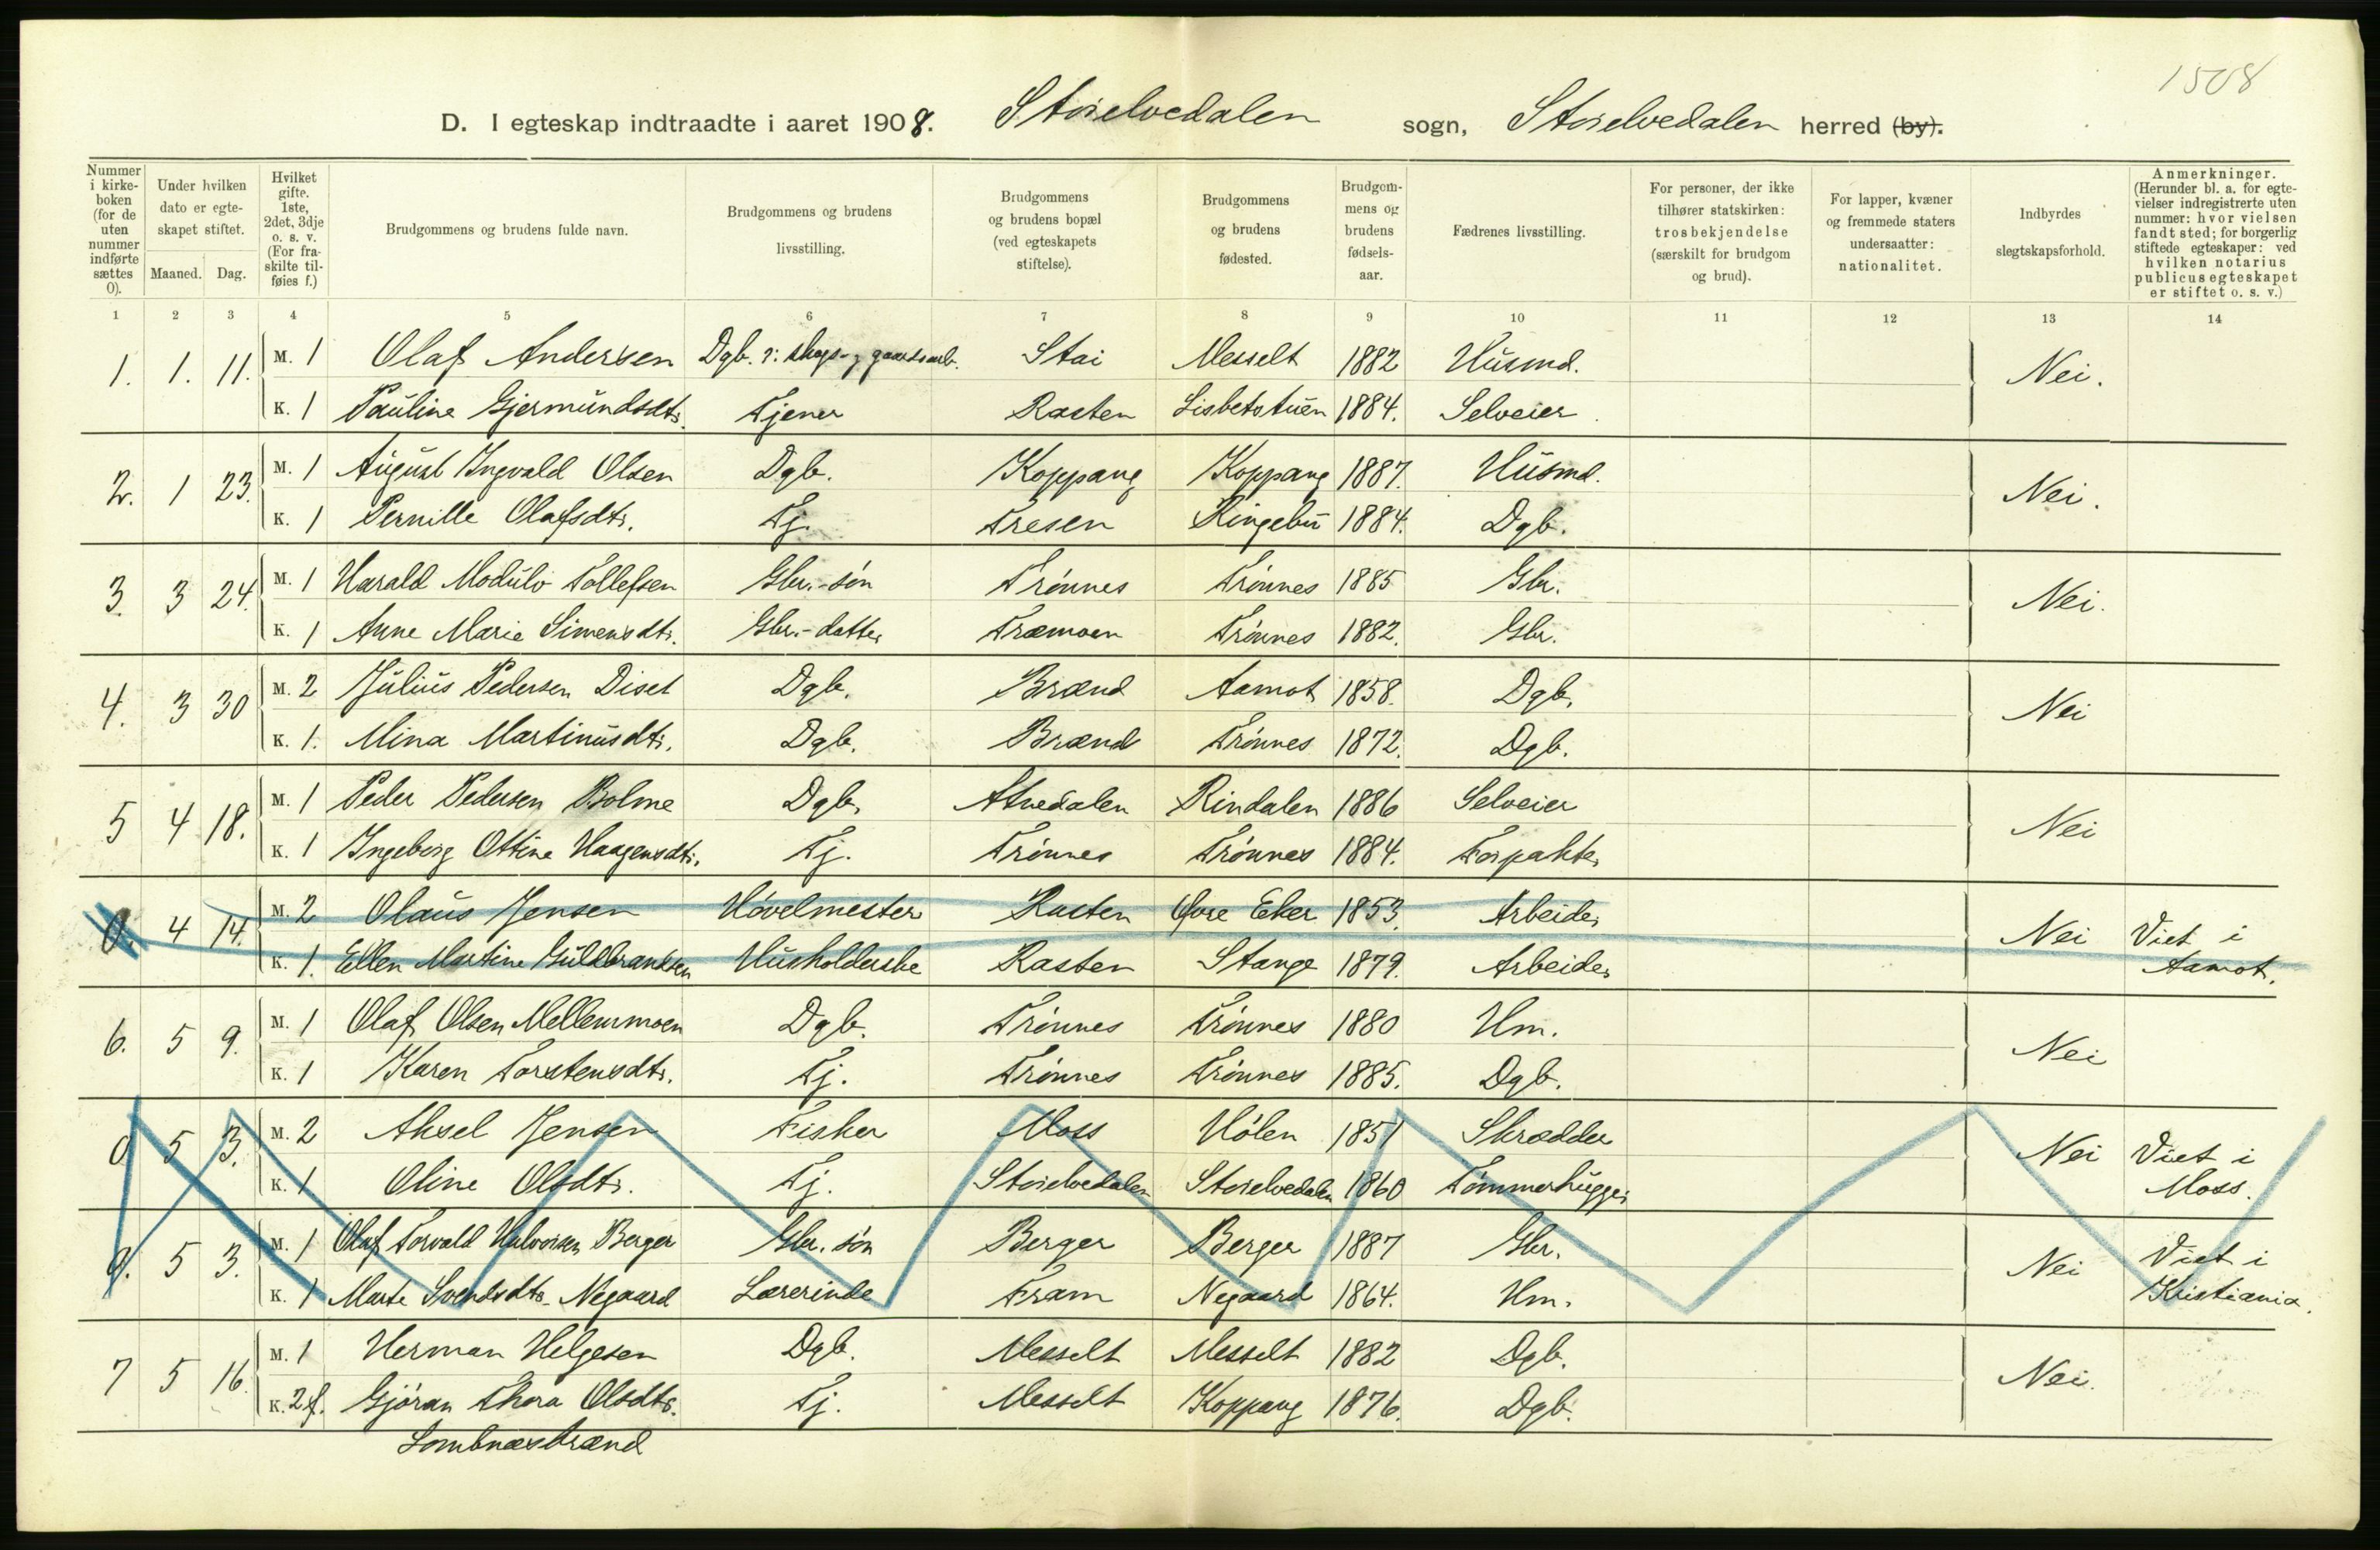 1508
D. I egteskap indtraadte i aaret 1908. Storelvedalen sogn, Storelvedalen herred (by).
Nummer i kirke- boken (for de uten nummer indførte sættes 0). Under hvilken dato er egte- skapet stiftet. Maaned. Dag. Hvilket gifte. 1ste, 2det, 3dje o. s. v. (For fra- skilte til- føies f.) Brudgommens og brudens fulde navn. Brudgommens og brudens livsstilling. Brudgommens og brudens bopæl (ved egteskapets stiftelse). Brudgommens og brudens fødested. Brudgom- mens og brudens fødsels- aar. Fædrenes livsstilling. For personer, der ikke tilhører statskirken: trosbekjendelse (særskilt for brudgom og brud). For lapper, kvæner og fremmede staters undersaatter: nationalitet. Indbyrdes slegtskapsforhold. Anmerkninger. (Herunder bl. a. for egte- vielser indregistrerte uten nummer: hvor vielsen fandt sted; for borgerlig stiftede egteskaper: ved hvilken notarius publicus egteskapet er stiftet o. s. v.)
1 2 3 4 5 6 7 8 9 10 11 12 13 14
1. 1. 11. M. 1 Olaf Andersen Dgb. ɔ: skogs- og gaardsarb. Stai Messelt 1882 Husmd. Nei.
K. 1 Pauline Gjermundsdtr. Tjener Rasten Lisbetstuen 1884. Selveier
2. 1 23. M. 1 August Ingvald Olsen Dgb. Koppang Koppang 1887. Husmd. Nei.
K. 1 Pernille Olafsdtr. Tj. Tresen Ringebu 1884. Dgb.
3. 3 24. M. 1 Harald Modulv Tollefsen Gbr.-søn Trønnes Trønnes 1885 Gbr. Nei.
K. 1 Anne Marie Simensdtr. Gbr.-datter Træmoen Trønnes 1882. Gbr.
4. 3 30 M. 2 Julius Pedersen Diset Dgb. Brænd Aamot 1858. Dgb. Nei
K. 1. Mina Martinusdtr. Dgb. Brænd Trønnes 1872. Dgb.
5 4 18. M. 1 Peder Pedersen Bolme Dgb. Atnedalen Rindalen 1886 Selveier Nei
K. 1 Ingeborg Ottine Haagensdtr. Tj. Trønnes Trønnes 1884. Forpakter
0. 4 14. M. 2 Olaus Jensen Høvelmester Rasten Øvre Eker 1853. Arbeider Nei Viet i
K. 1. Ellen Martine Guldbrandsen Husholderske Rasten Stange 1879. Arbeider Aamot.
6. 5 9. M. 1 Olaf Olsen Mellemmoen Dgb. Trønnes Trønnes 1880 Hm. Nei
K. 1 Karen Torstensdtr. Tj. Trønnes Trønnes 1885. Dgb.
0 5 3. M. 2 Aksel Jensen Fisker Moss Hølen 1851 Skrædder Nei Viet i
K. 1 Oline Olsdtr. Tj. Storelvedalen Storelvedalen 1860 Tømmerhugger Moss.
0. 5 3. M. 1 Olaf Torvald Halvorsen Berger Gbr. søn Berger Berger 1887 Gbr. Nei Viet i
K. 1 Marte Svendsdtr. Negaard Lærerinde Fram Negaard 1864. Hm. Kristiania.
7 5 16. M. 1 Herman Helgesen Dgb. Messelt Messelt 1882 Dgb. Nei.
K. 2 f. Gjøran Thora Olsdtr. Tj. Messelt Koppang 1876. Dgb.
Lombnæsbrænd